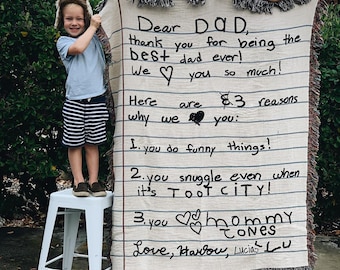 Dear DAD,
thank you for being the
best dad ever!
We ♡ you so much!
Here are &3 reasons
why we ♥ you:
1. you do funny things!
2. you snuggle even when
it's TOOT CITY!
3. you ♡♡ mommy
TONES
Love, Harlow, Lucias Lu